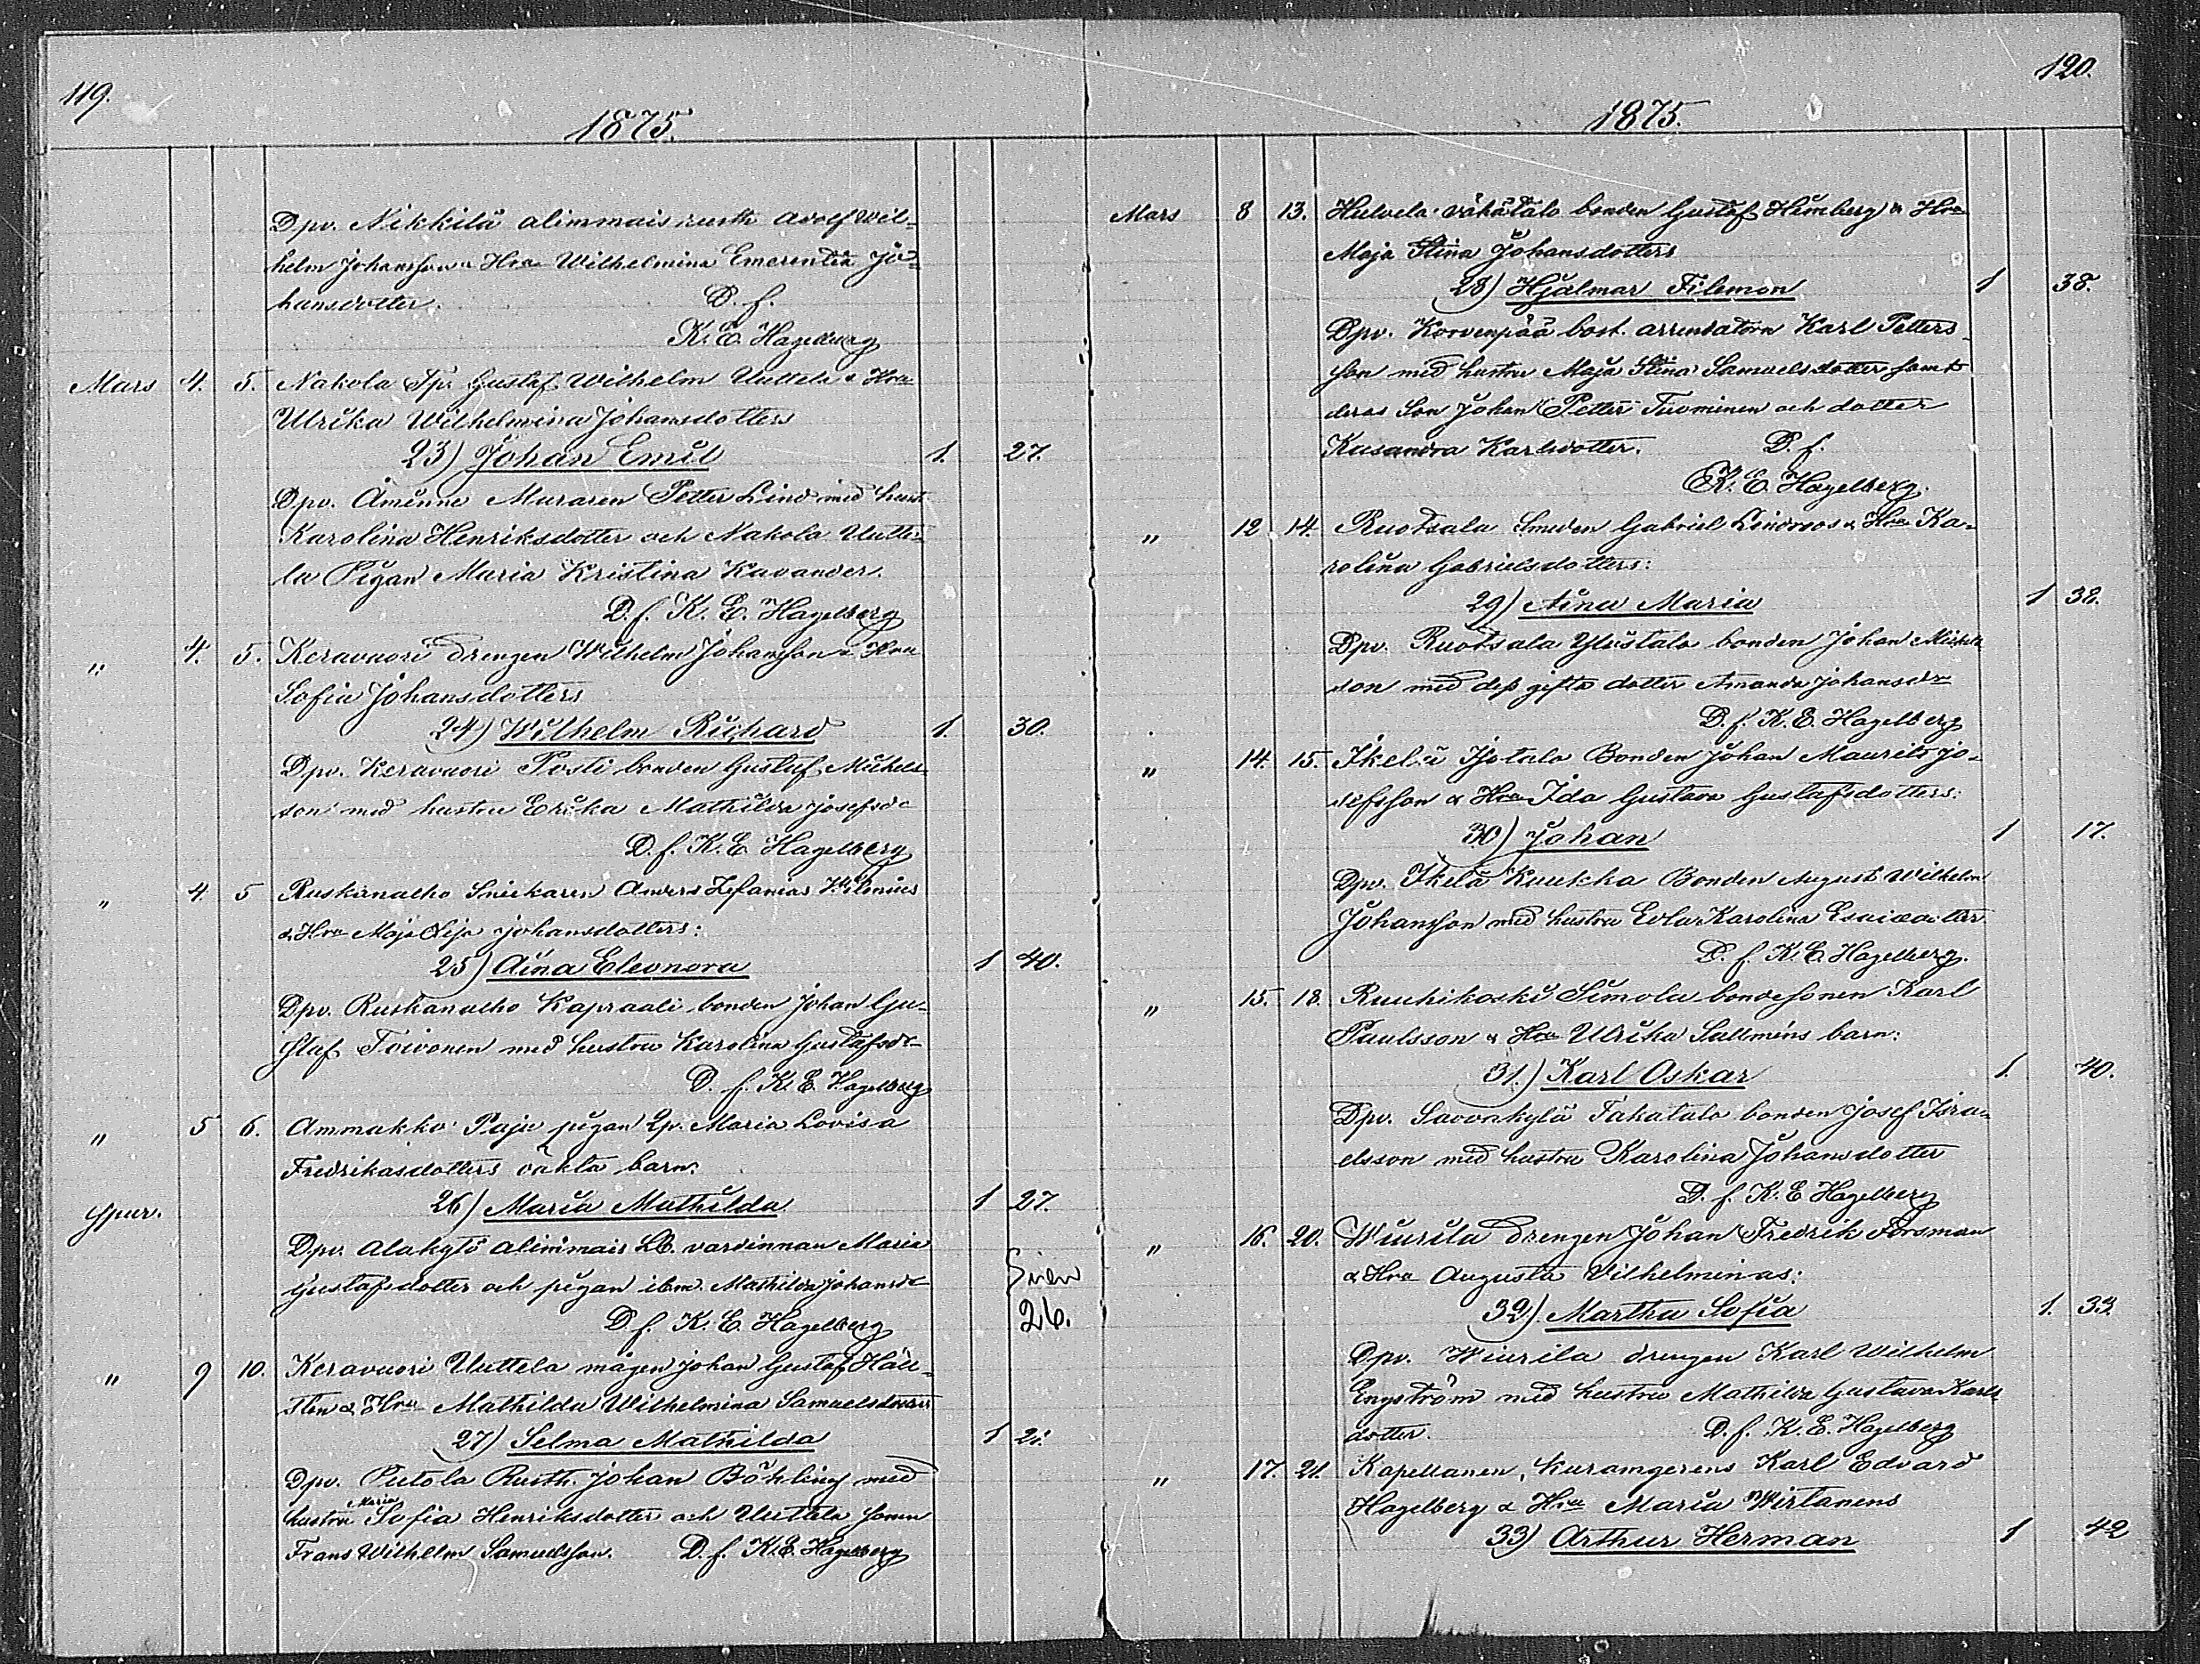 119.
1875.
Dpv. Nikkilä alimmais rusth. Adolf Wil-
helm Johansson & Hru Wilhelmina Emerentia Jo-
hansdotter. D. f.
K. E. Hagelberg
Mars 4. 5. Nakola Sp. Gustaf Wilhelm Uuttela & Hru
Ulrika Wilhelmina Johansdotters
23) Johan Emil 1. 27.
Dpv. Åminne Muraren Petter Lind med hust.
Karolina Henriksdotter och Nakola Uutte-
la Pigan Maria Kristina Kavander.
D. f. K. E. Hagelberg
" 4. 5. Keravuori Drengen Wilhelm Johansson & Hru
Sofia Johansdotters
24) Wilhelm Richard 1. 30.
Dpv. Keravuori Posti bonden Gustaf Michels-
son med hustru Erika Mathilda Josefsdr
D. f. K. E. Hagelberg
" 4. 5 Ruskanalho Snickaren Anders Zefanias Wilenius
& Hru Maja Lisa Johansdotters:
25) Aina Eleonora 1 40.
Dpv. Ruskanalho Kapraali bonden Johan Gu-
staf Toivonen med hustru Karolina Gustafsdr
D. f. K. E. Hagelberg
" 5 6. Ammakko Paju pigan Lp. Maria Lovisa
Fredrikasdotters oäkta barn:
26) Maria Mathilda 1 27.
Spur.
Dpv. Alakytö alimmais LB. vardinnan Maria
Gustafsdotter och pigan ibm. Mathilda Johansdr
D. f. K. E. Hagelberg
Siren
26.
" 9 10. Keravuori Uuttela mågen Johan Gustaf Häll-
sten & Hru Mathilda Wilhelmina Samuelsdotters
27) Selma Mathilda 1 21.
Dpv. Putola Rusth. Johan Böhling med
hustru Maria Sofia Henriksdotter och Uuttela sonen
Frans Wilhelm Samuelsson. D. f. K. E. Hagelberg
120.
1875.
Mars 8 13. Hulvela Vähätalo bonden Gustaf Heimberg & Hru
Maja Stina Johansdotters
28) Hjalmar Filemon 1 38.
Dpv. Korvenpää bost. arrendatorn Karl Petters-
son med hustru Maja Stina Samuelsdotter samt
deras Son Johan Petter Tuominen och dotter
Kusandra Karlsdotter. D. f.
K. E. Hagelberg.
" 12. 14. Ruotsala Smeden Gabriel Lindroos & Hru Ka-
rolina Gabrielsdotters:
29) Aina Maria 1 38.
Dpv. Ruotsala Ylistalo bonden Johan Mickels-
son med dess gifta dotter Amanda Johansdr
D. f. K. E. Hagelberg
" 14. 15. Ikelä Isotalo Bonden Johan Maurits Jo-
sefsson & Hru Ida Gustava Gustafsdotters:
30) Johan 1 17.
Dpv. Ikelä Kuukka Bonden August Wilhelm
Johansson med hustru Edla Karolina Esaiædotter
D. f. K. E. Hagelberg.
" 15. 18. Ruuhikoski Simola bondesonen Karl
Paulsson & Hru Ulrika Sallméns barn:
31.) Karl Oskar 1. 40.
Dpv. Savonkylä Takatalo bonden Josef Isra-
elsson med hustru Karolina Johansdotter
D. f. K. E. Hagelberg
" 16. 20. Wiurila Drengen Johan Fredrik Forsman
& Hru Augusta Vilhelminas:
32) Martha Sofia 1. 33.
Dpv. Wiurila drengen Karl Wilhelm
Engström med hustru Mathilda Gustava Karls-
dotter. D. f. K. E. Hagelberg
" 17. 21. Kapellanen, kuramgerens Karl Edvard
Hagelberg & Hru Maria Wirtanens
33) Arthur Herman 1 42